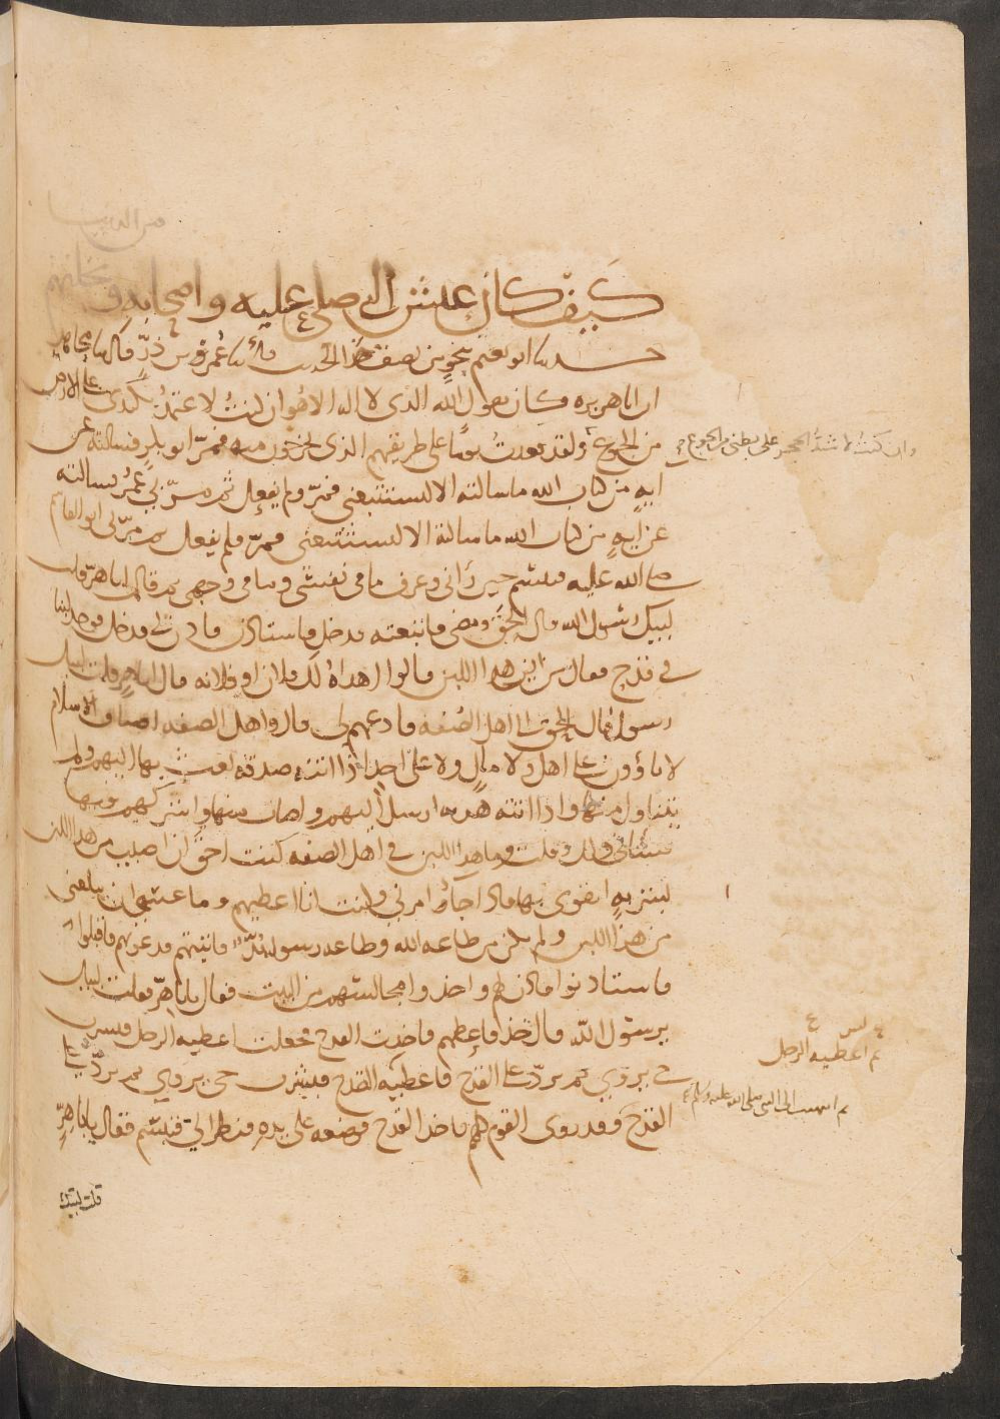 من الدنيا
كيف كان عيش النبي صلى عليه واصحابه وتخليهم
حدثنا ابو نعيم بنحو من نصف هذا الحديث قال نا عمر بن ذر قال نا مجاهد
ان ابا هريره كان يقول الله الذي لا اله الا هو ان كنت لاعتمد بكبدي على الارض
من الجوع ولقد قعدت يوما على طريقهم الذي يخرجون منه فمر ابو بكر فسالته عن
وان كنت لاشد الحجر على بطني من الجوع
ايه من كتاب الله ما سالته الا ليستتبعني فمر ولم يفعل ثم مر بي عمر فسالته
عن ايه من كتاب الله ما سالته الا ليستتبعني فمر فلم يفعل ثم مر بي ابو القاسم
صلى الله عليه فتبسم حين رآني وعرف ما في نفسي وما في وجهي ثم قال ابا هر قلت
لبيك رسول الله قال الحق ومضى فاتبعته فدخل فاستاذن فاذن لي فدخل فوجد لبنا
في قدح فقال من اين هذا اللبن قالوا اهداه لك فلان او فلانه قال ابا هر قلت لبيك
رسول قال الحق الى اهل الصفه فادعهم لي قال واهل الصفه اضياف الاسلام
لا ياوون على اهل ولا مال ولا على احد اذا اتته صدقه بعث بها اليهم ولم
يتناول منها واذا اتته هديه ارسل اليهم واصاب منها واشركهم فيها
فساني ذلك وقلت وما هذا اللبن في اهل الصفه كنت احق ان اصيب من هذا اللبن
شربه اتقوى بها فاذا جاوا امرني فكنت انا اعطيهم وما عسى ان يبلغني
من هذا اللبن ولم يكن من طاعه الله وطاعه رسوله بد فاتيتهم فدعوتهم فاقبلوا
فاستاذنوا فاذن لهم واخذوا مجالسهم من البيت فقال يابا هر فقلت لبيك
يرسول الله قال خذ فاعطهم فاخذت القدح فجعلت اعطيه الرجل فيشرب
حتى يروى ثم يرد علي القدح فاعطيه القدح فيشرب حتى يروى ثم يرد علي
ثم اعطيه الرجل
القدح وقد روى القوم كلهم فاخذ القدح فوضعه على يده فنظر الي فتبسم فقال يابا هر
ثم انتهيت الى النبي صلى الله عليه وسلم
قلت لبيك